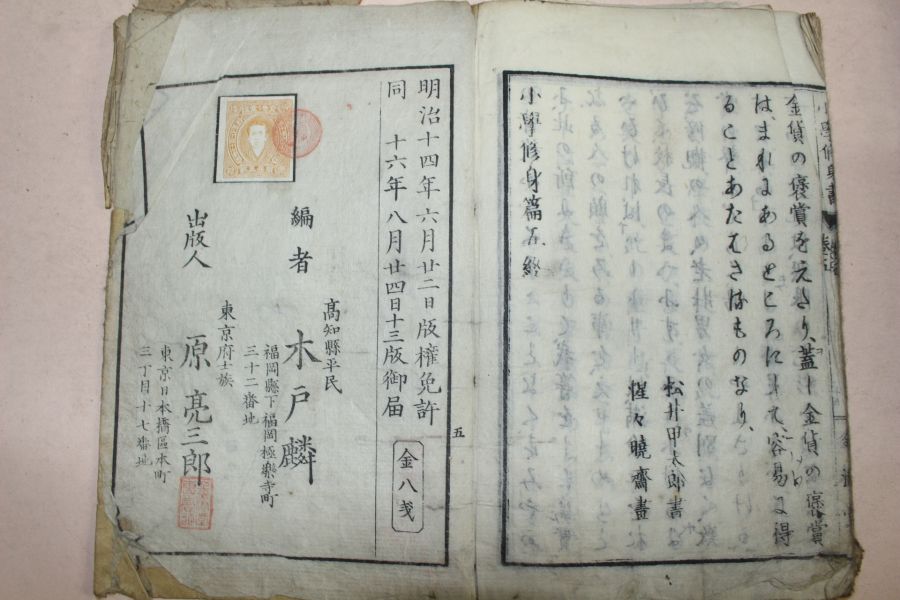 金貨の褒賞をえたり、蓋し金貨の褒賞
は、まれにあるところにして、容易に得
ることあたはざるものなり、
松井甲太郎書
惺々暁齋畫
小學修身篇五終
小學修身書
五
明治十四年六月廿二日版權免許
同 十六年八月廿四日十三版御届
金八戔
編者
高知縣平民
木戸麟
福岡縣下福岡極樂寺町
三十二番地
出版人
東京府士族
原亮三郎
東京日本橋區本町
三丁目十七番地